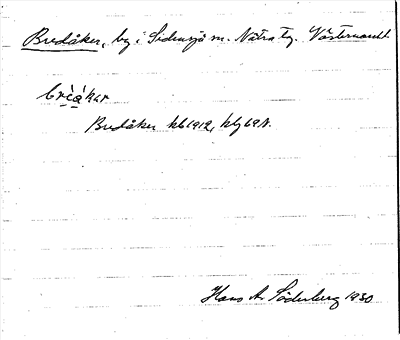 Bredåker, by i Sidensjö sn. Nätra tg. Västernorrl.
brèákər
Bredåker kb 1912, kbg 69N.
Hans A. Söderberg 1930